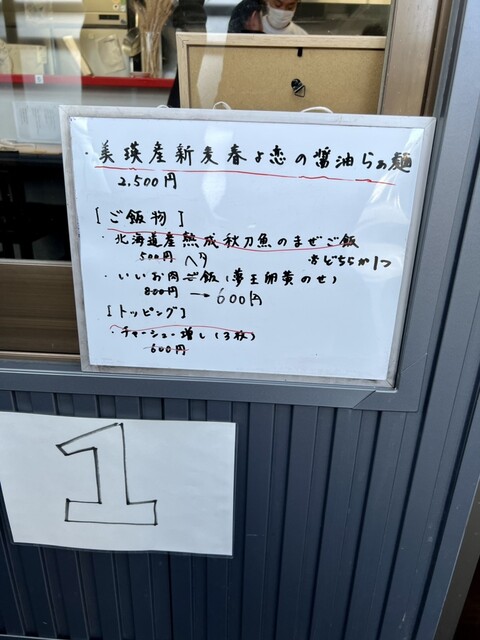 ・美瑛産新麦春よ恋の醤油らぁ麺
2,500円
[ご飯物]
・北海道産熟成秋刀魚のまぜご飯
500円
※どちらか1つ
・いいお肉ご飯(夢王卵黄のせ)
800円→600円
[トッピング]
・チャーシュー増し(3枚)
600円
1